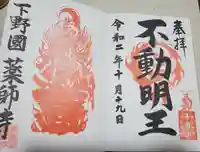 奉拝
不動明王
令和二年十月十九日
下野國
薬師寺